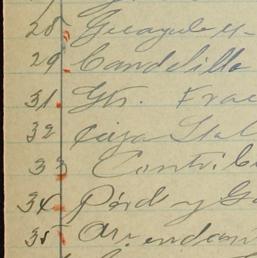 28 Guayule y
29 Candelilla
31 Gts. Frac
32 Caja
33 Contrib
34 Pérd y Ga
35 Arrendam